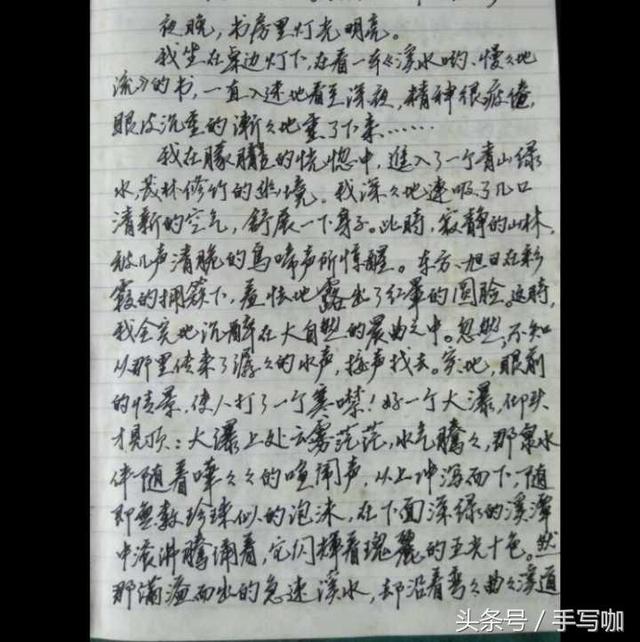 夜晚，书房里灯光明亮。
我坐在桌边灯下，在看一本《溪水哟、慢々地
流》的书，一直入迷地看至深夜，精神很疲倦，
眼皮沉重的渐々地垂了下来……
我在朦胧的恍惚中，進入了一个青山绿
水，茂林修竹的幽境。我深々地連吸了几口
清新的空气，舒展一下身子。此時，寂静的山林，
被几声清脆的鸟啼声所惊醒。东方、旭日在彩
霞的拥簇下，羞怯地露出了红晕的圆脸。这時，
我全实地沉醉在大自然的晨曲之中。忽然，不知
从那里传来了潺々的水声，接声找去。突地，眼前
的情景，使人打了一个寒噤！好一个大瀑，仰头
才見顶：大瀑上处云雾茫茫，水气騰々，那泉水
伴随着嘩々々的喧闹声，从上冲泻而下，随
即無数珍珠似的泡沫，在下面深绿的溪潭
中滚沸騰涌着，它闪輝着瑰麗的五光十色。然
那满溢而出的急速溪水，却沿着弯々曲々溪道
头条号 / 手写咖